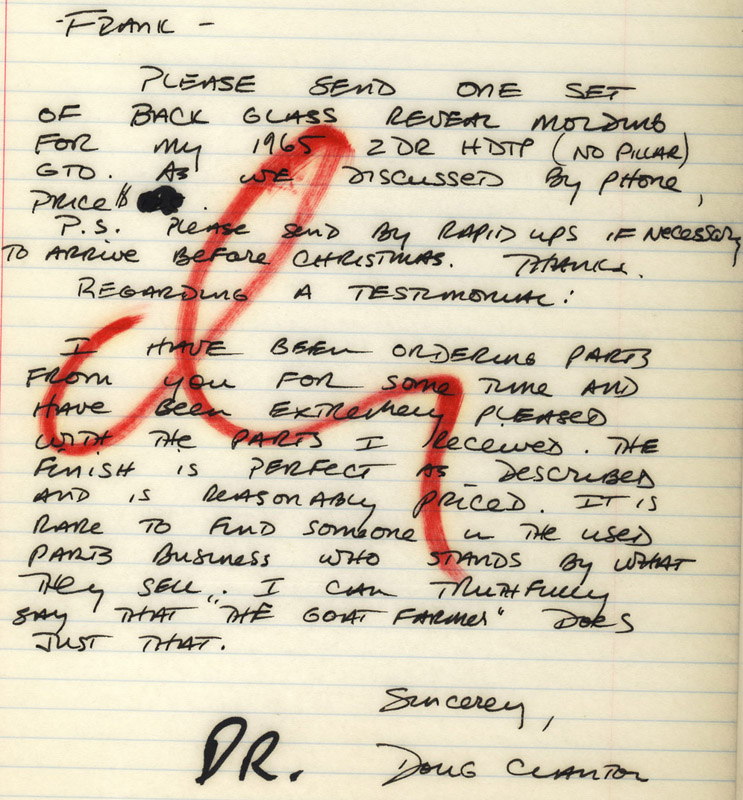 - FRANK -
PLEASE SEND ONE SET
OF BACK GLASS REVEAL MOLDING
FOR MY 1965 2DR HDTP (NO PILLAR)
GTO. AS WE DISCUSSED BY PHONE,
PRICE $ .
P.S. PLEASE SEND BY RAPID UPS IF NECESSARY
TO ARRIVE BEFORE CHRISTMAS. THANKS.
REGARDING A TESTIMONIAL:
I HAVE BEEN ORDERING PARTS
FROM YOU FOR SOME TIME AND
HAVE BEEN EXTREMELY PLEASED
WITH THE PARTS I RECEIVED. THE
FINISH IS PERFECT AS DESCRIBED
AND IS REASONABLY PRICED. IT IS
RARE TO FIND SOMEONE IN THE USED
PARTS BUSINESS WHO STANDS BY WHAT
THEY SELL. I CAN TRUTHFULLY
SAY THAT "THE GOAT FARMER" DOES
JUST THAT.
Sincerely,
DR. DOUG CLANTON